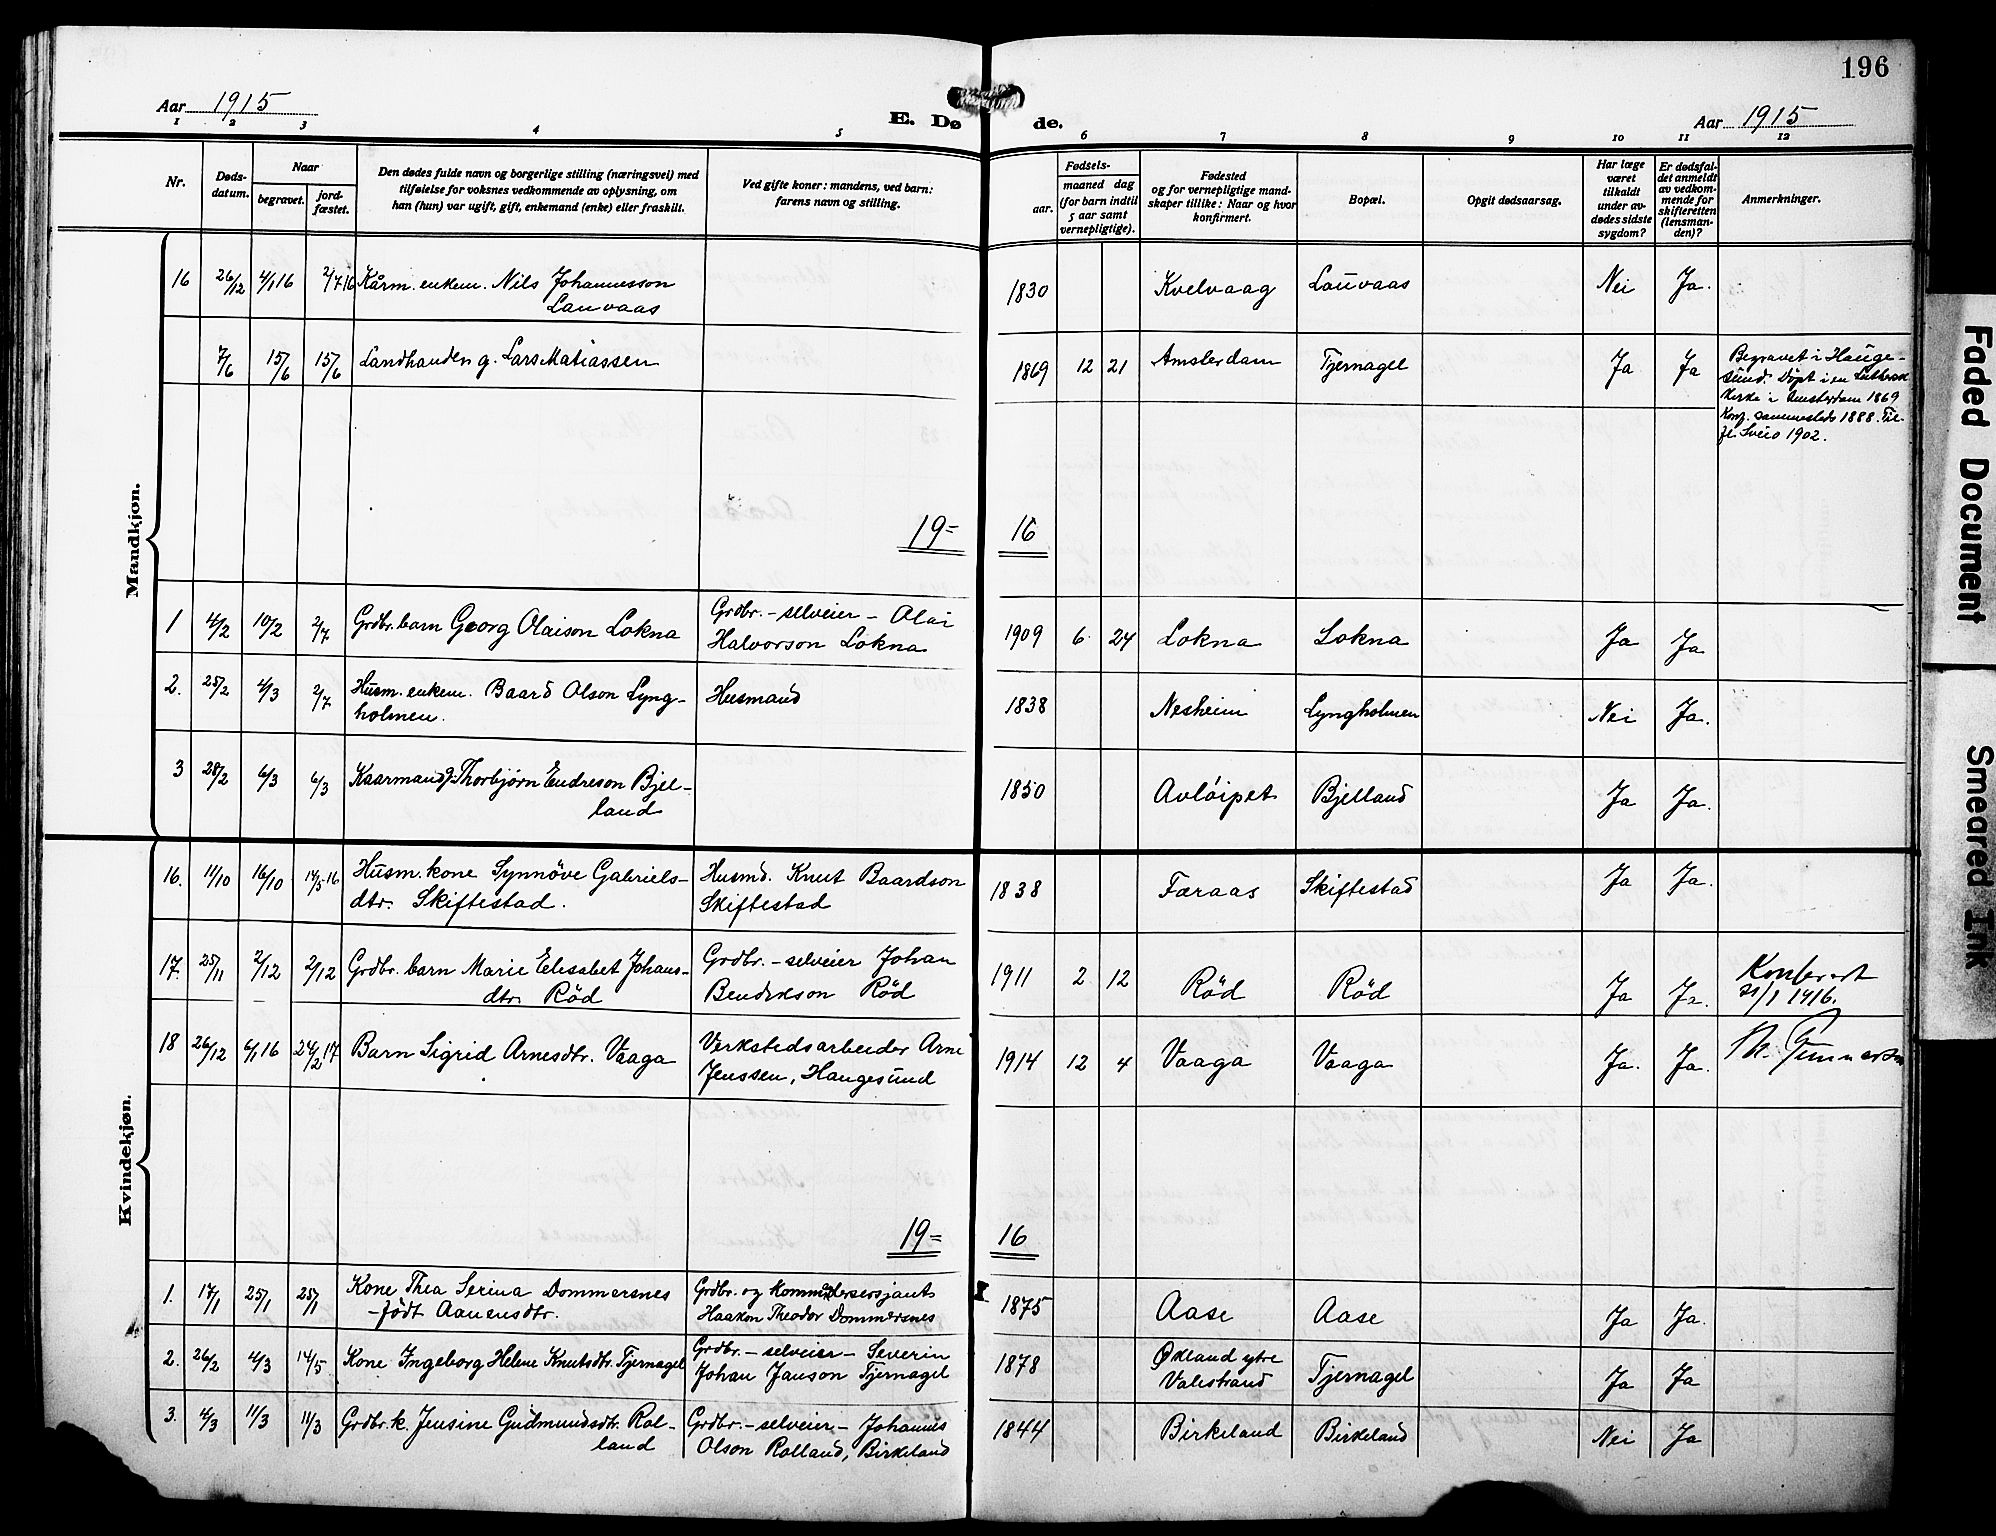 196
Aar 1915
E. Dø de.
Aar 1915
1 2 3 4 5 6 7 8 9 10 11 12
Nr.
Døds-
datum.
Naar
begravet.
jord-
fæstet.
Den dødes fulde navn og borgerlige stilling (næringsvei) med
tilføielse for voksnes vedkommende av oplysning, om
han (hun) var ugift, gift, enkemand (enke) eller fraskilt.
Ved gifte koner: mandens, ved barn:
farens navn og stilling.
Fødsels-
aar.
maaned dag
(for barn indtil
5 aar samt
vernepligtige).
Fødested
og for vernepligtige mand-
skaper tillike: Naar og hvor
konfirmert.
Bopæl.
Opgit dødsaarsag.
Har læge
været
tilkaldt
under av-
dødes sidste
sygdom?
Er dødsfal-
det anmeldt
av vedkom-
mende for
skifteretten
(lensman-
den)?
Anmerkninger.
Mandkjøn.
16 26/12 4/1 16 2/7 16 Kårm. enkem. Nils Johannesson
Lauvaas
1830 Kvelvaag Lauvaas Nei Ja.
7/6 15/6 15/6 Landhanden g. Lars Matiassen
1869 12 21 Amsterdam Tjernagel Ja Ja
Begravet i Hauge-
sund. Døpt i en Luthersk
Kirke i Amsterdam 1869
Konf. sammesteds 1888. Til-
fl. Sveio 1902.
19= 16
1 4/2 10/2 2/7 Grdbr. barn Georg Olaison Lokna
Grdbr. - selveier - Olai
Halvorson Lokna
1909 6 24 Lokna Lokna Ja Ja
2. 25/2 4/3 2/7 Husm. enkem. Baard Olson Lyng-
holmen.
Husmand
1838 Nesheim Lyngholmen Nei Ja.
3 28/2 6/3 6/3 Kaarmand g. Thorbjørn Endreson Bjel-
land
1850 Avløipet Bjelland Ja Ja.
Kvindekjøn.
16. 11/10 16/10 14/5 16 Husm. kone Synnöve Gabriels-
dtr. Skiftestad.
Husmd. Knut Baardson
Skiftestad
1838 Færaas Skiftestad Ja Ja.
17. 25/11 2/12 2/12 Grdbr. barn Marie Elisabet Johans-
dtr. Rød
Grdbr. - selveier Johan
Bendikson Rød
1911 2 12 Rød Rød Ja Ja.
Konferert
21/1 1916.
18 26/12 6/1 16 24/2 17 Barn Sigrid Arnesdtr. Vaaga
Verkstedsarbeider Arne
Jenssen, Haugesund
1914 12 4 Vaaga Vaaga Ja. Ja.
Gunnerson
19= 16
1. 17/1 25/1 25/1 Kone Thea Serina Dommersnes
- født Aanensdtr.
Grdbr. og kommandersersjant
Haakon Theodor Dommersnes
1875 Aase Aase Ja Ja.
2. 26/2 4/3 14/5 Kone Ingeborg Helene Knutsdtr. Tjernagel
Grdbr. - selveier - Severin
Johan Janson Tjernagel
1878 Økland ytre
Valestrand
Tjernagel Ja Ja
3. 4/3 11/3 11/3 Grdbr. k. Jensine Gudmundsdtr. Rol-
land
Grdbr. - selveier - Johannes
Olson Rolland, Birkeland
1844 Birkeland Birkeland Nei Ja
Faded Document
Smeared Ink